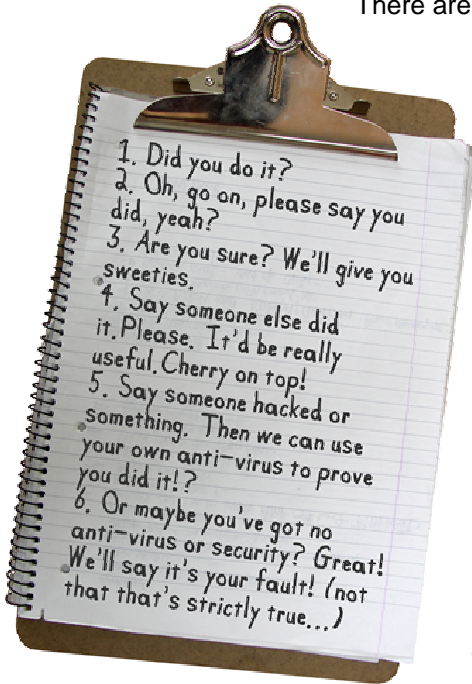 There are
1. Did you do it?
2. Oh, go on, please say you
did, yeah?
3. Are you sure? We'll give you
sweeties.
4. Say someone else did
it. Please. It'd be really
useful. Cherry on top!
5. Say someone hacked or
something. Then we can use
your own anti-virus to prove
you did it!?
6. Or maybe you've got no
anti-virus or security? Great!
We'll say it's your fault! (not
that that's strictly true...)